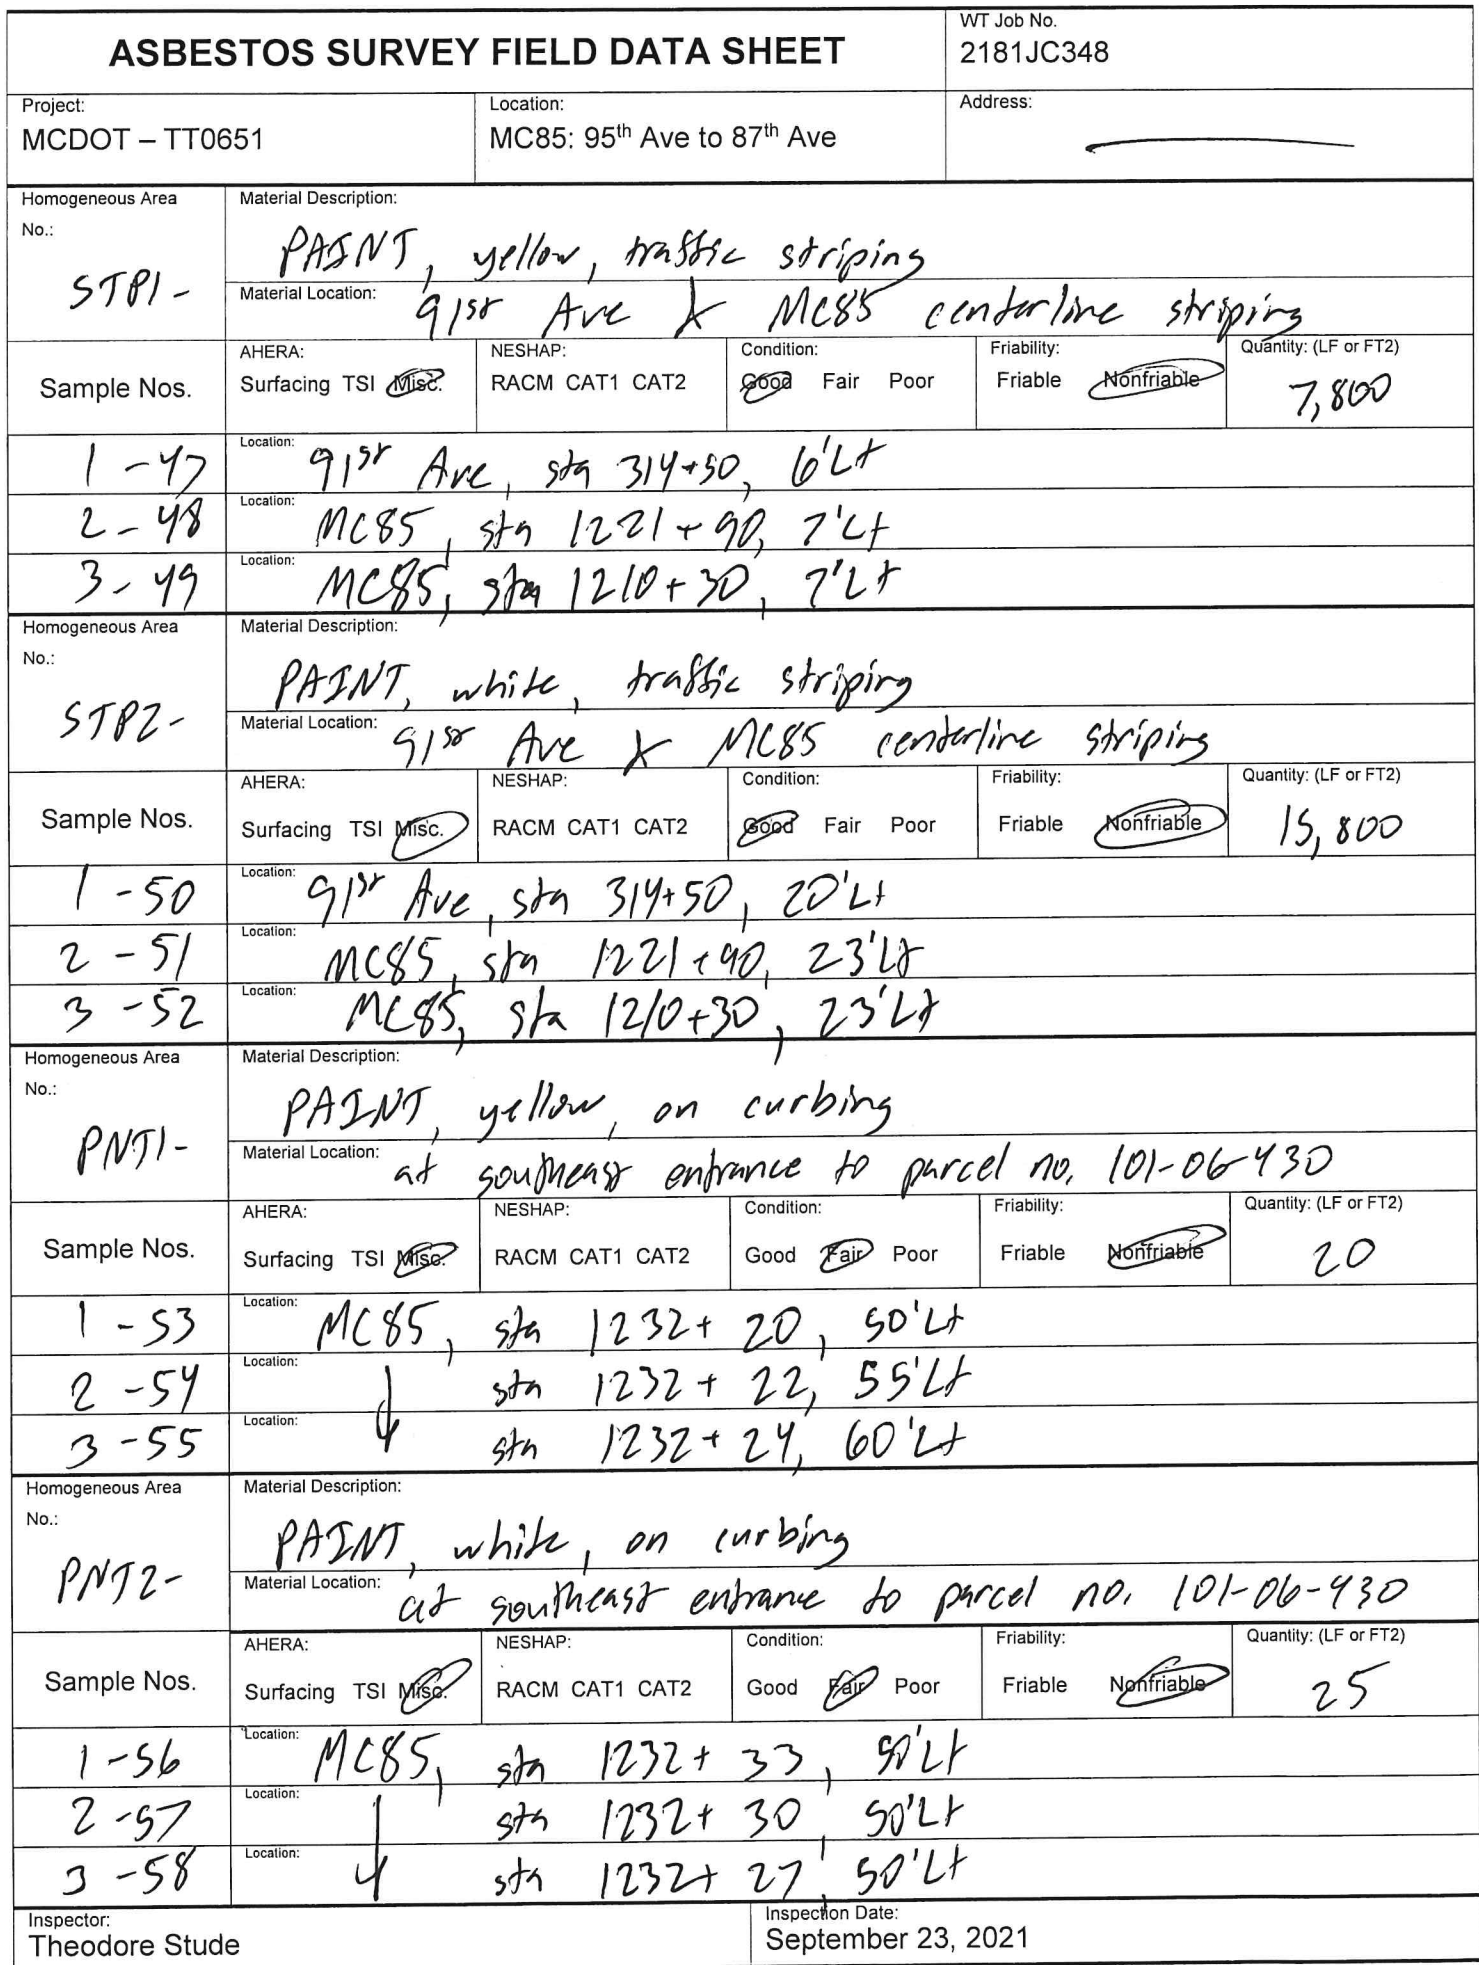 ASBESTOS SURVEY FIELD DATA SHEET
WT Job No.
2181JC348
Project:
MCDOT – TT0651
Location:
MC85: 95th Ave to 87th Ave
Address:
Homogeneous Area
No.:
STP1-
Material Description:
PAINT, yellow, traffic striping
Material Location: 91st Ave & MC85 centerline striping
Sample Nos.
AHERA:
Surfacing TSI Misc.
NESHAP:
RACM CAT1 CAT2
Condition:
Good Fair Poor
Friability:
Friable Nonfriable
Quantity: (LF or FT2)
7,800
1 - 47 Location: 91st Ave, sta 314+50, 6'Lt
2 - 48 Location: MC85, sta 1221+90, 7'Lt
3 - 49 Location: MC85, sta 1210+30, 7'Lt
Homogeneous Area
No.:
STP2-
Material Description:
PAINT, white, traffic striping
Material Location: 91st Ave & MC85 centerline striping
Sample Nos.
AHERA:
Surfacing TSI Misc.
NESHAP:
RACM CAT1 CAT2
Condition:
Good Fair Poor
Friability:
Friable Nonfriable
Quantity: (LF or FT2)
15,800
1 - 50 Location: 91st Ave, sta 314+50, 20'Lt
2 - 51 Location: MC85, sta 1221+90, 23'Lt
3 - 52 Location: MC85, sta 1210+30, 23'Lt
Homogeneous Area
No.:
PNT1-
Material Description:
PAINT, yellow, on curbing
Material Location: at southeast entrance to parcel no. 101-06-430
Sample Nos.
AHERA:
Surfacing TSI Misc.
NESHAP:
RACM CAT1 CAT2
Condition:
Good Fair Poor
Friability:
Friable Nonfriable
Quantity: (LF or FT2)
20
1 - 53 Location: MC85, sta 1232+20, 50'Lt
2 - 54 Location: sta 1232+22, 55'Lt
3 - 55 Location: sta 1232+24, 60'Lt
Homogeneous Area
No.:
PNT2-
Material Description:
PAINT, white, on curbing
Material Location: at southeast entrance to parcel no. 101-06-430
Sample Nos.
AHERA:
Surfacing TSI Misc.
NESHAP:
RACM CAT1 CAT2
Condition:
Good Fair Poor
Friability:
Friable Nonfriable
Quantity: (LF or FT2)
25
1 - 56 Location: MC85, sta 1232+33, 50'Lt
2 - 57 Location: sta 1232+30, 50'Lt
3 - 58 Location: sta 1232+27, 50'Lt
Inspector:
Theodore Stude
Inspection Date:
September 23, 2021